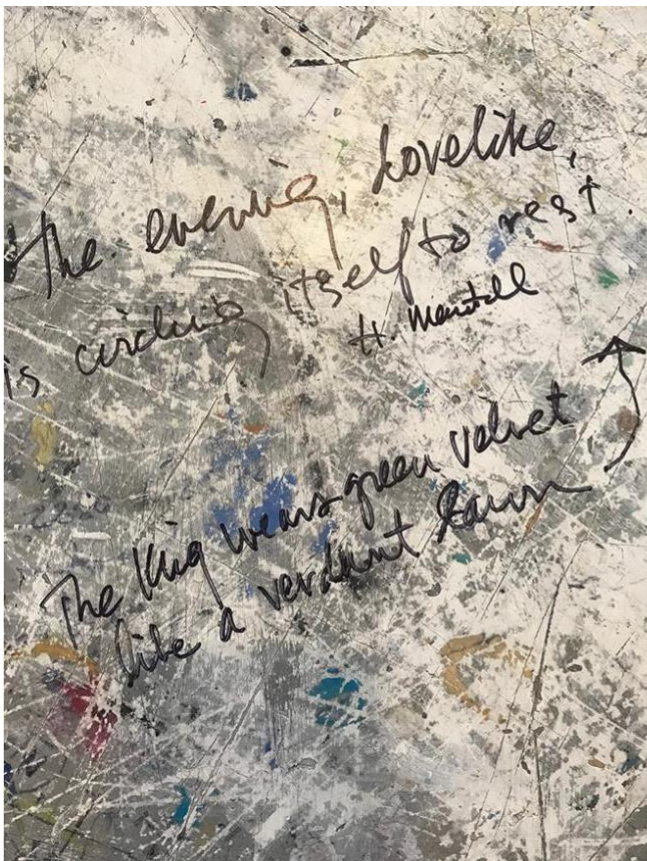 The evening, dovelike,
is circling itself to rest.
H. Mantell
The King wears green velvet
like a verdant lawn